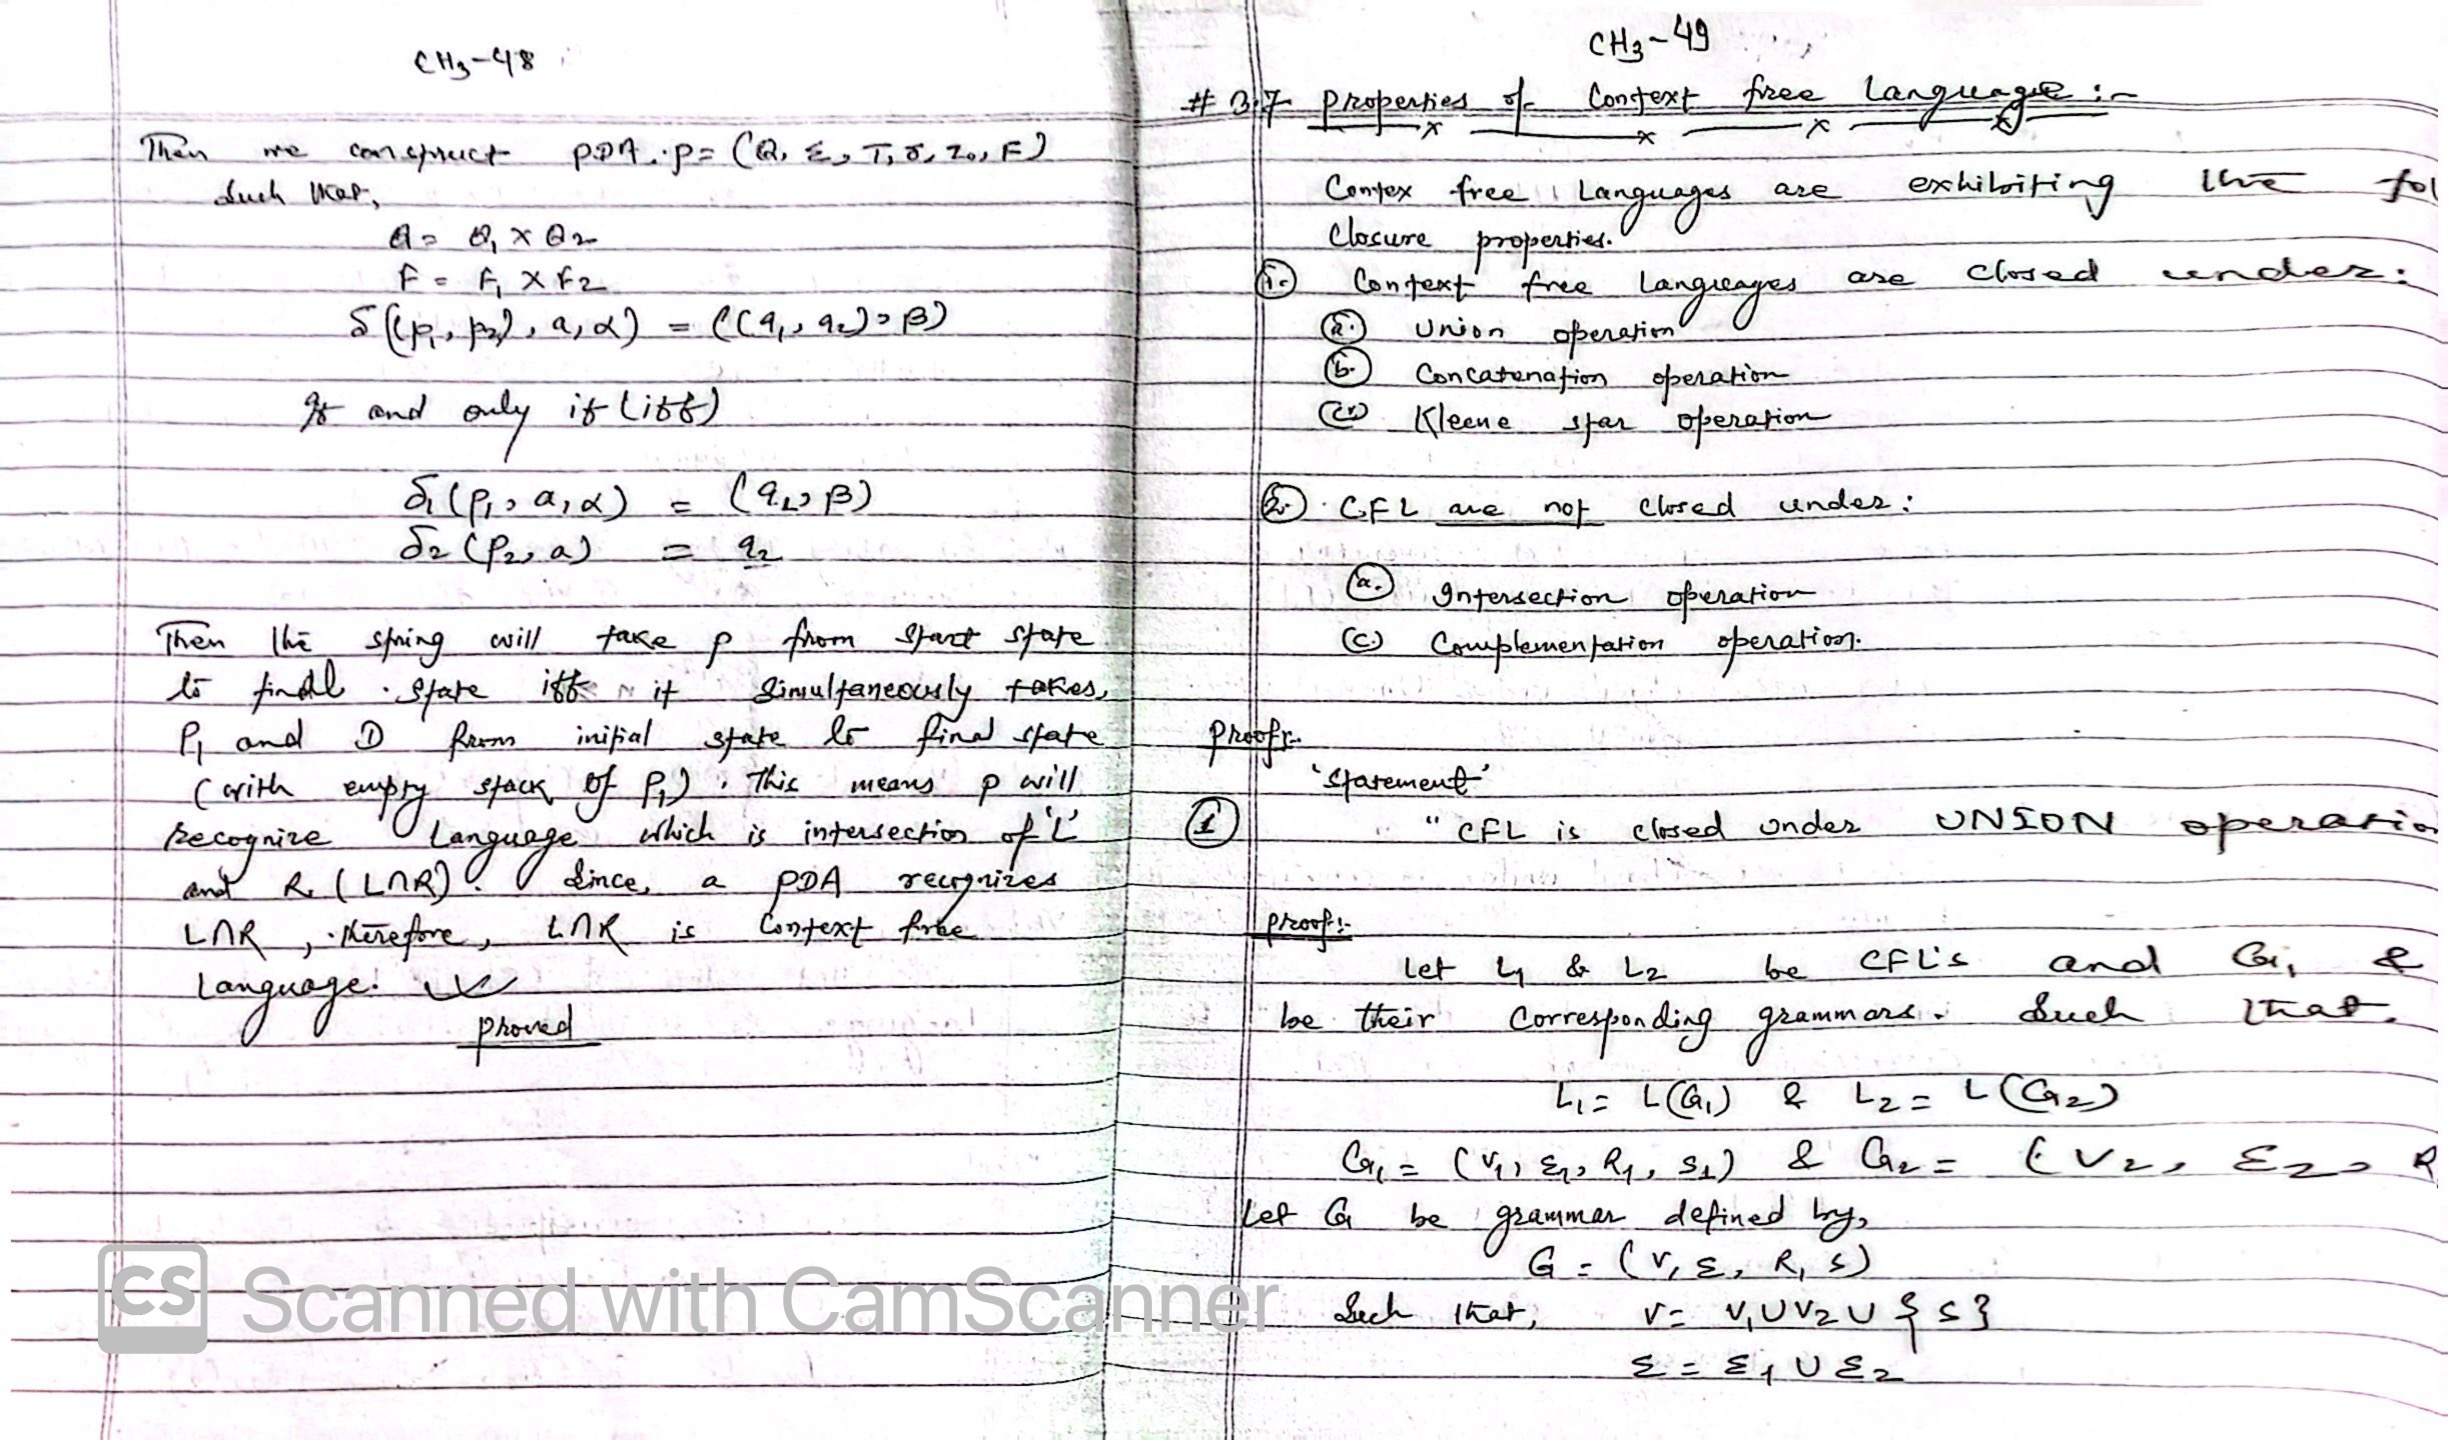 CH3-48
Then we construct PDA. P = (Q, Σ, T, δ, z0, F)
Such that,
Q = Q1 X Q2
F = F1 X F2
δ((p1, p2), a, α) = ((q1, q2), β)
If and only if (iff)
δ1(p1, a, α) = (q1, β)
δ2(p2, a) = q2
Then the string will take p from start state
to final state iff it simultaneously takes,
P1 and D from initial state to final state
(with empty stack of P1). This means p will
recognize language which is intersection of 'L'
and R. (L∩R). Since, a PDA recognizes
L∩R, therefore, L∩R is context free
language.
proved
CH3-49
# 3.7 Properties of Context free Language :-
Contex free Languages are exhibiting the fol
Closure properties.
1. Context free Languages are closed under:
a. Union operation
b. Concatenation operation
c. Kleene star operation
2. CFL are not closed under:
a. Intersection operation
c. Complementation operation.
Proof:-
'Statement'
1 " CFL is closed under UNION operatio
Proof:-
Let L1 & L2 be CFL's and G1 &
be their Corresponding grammars. Such that.
L1 = L(G1) & L2 = L(G2)
G1 = (V1, Σ1, R1, S1) & G2 = (V2, Σ2, R
Let G be grammar defined by,
G = (V, Σ, R, S)
Such that, V = V1 U V2 U {S}
Σ = Σ1 U Σ2
CS Scanned with CamScanner